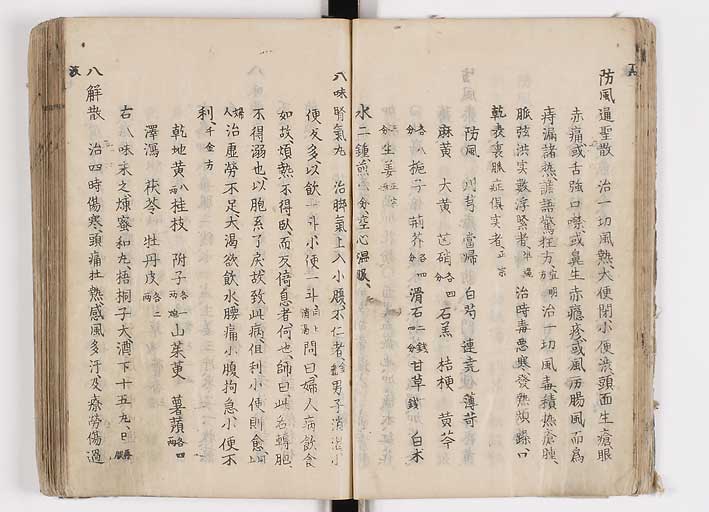 防風通聖散 治一切風熱大便閉小便澁頭面生瘡眼
赤痛或舌強口噤或鼻生赤癮疹或風而腸風而為
痔漏諸熱譫語驚狂方 治一切風毒積熱瘡腫
脈弦洪實數浮緊者 治時毒惡寒發熱煩躁口
乾表裏脈症俱實者 正宗
防風 川芎 當歸 白芍 連翹 薄荷
麻黄 大黄 芒硝 各四分 石羔 桔梗 黄芩
各八分 梔子 荊芥 各四分 滑石 二錢四分 甘草 白朮
生姜
水二鍾煎 空心温服
八味腎氣丸 治脚氣上入小腹不仁者 男子消渇小
便反多以飲一斗小便一斗 問曰婦人病飲食
如故煩熱不得臥而反倚息者何也師曰此名轉胞
不得溺也以胞系了戾故致此病但利小便則愈
婦人 治虚勞不足大渇欲飲水腰痛小腹拘急小便不
利 千金方
乾地黄 八兩 桂枝 附子 各一兩 山茱萸 薯蕷 各四兩
澤瀉 茯苓 牡丹皮 各三兩
右八味末之煉蜜和丸梧桐子大酒下十五丸日再服
八解散 治四時傷寒頭痛壯熱感風多汗及療勞傷過